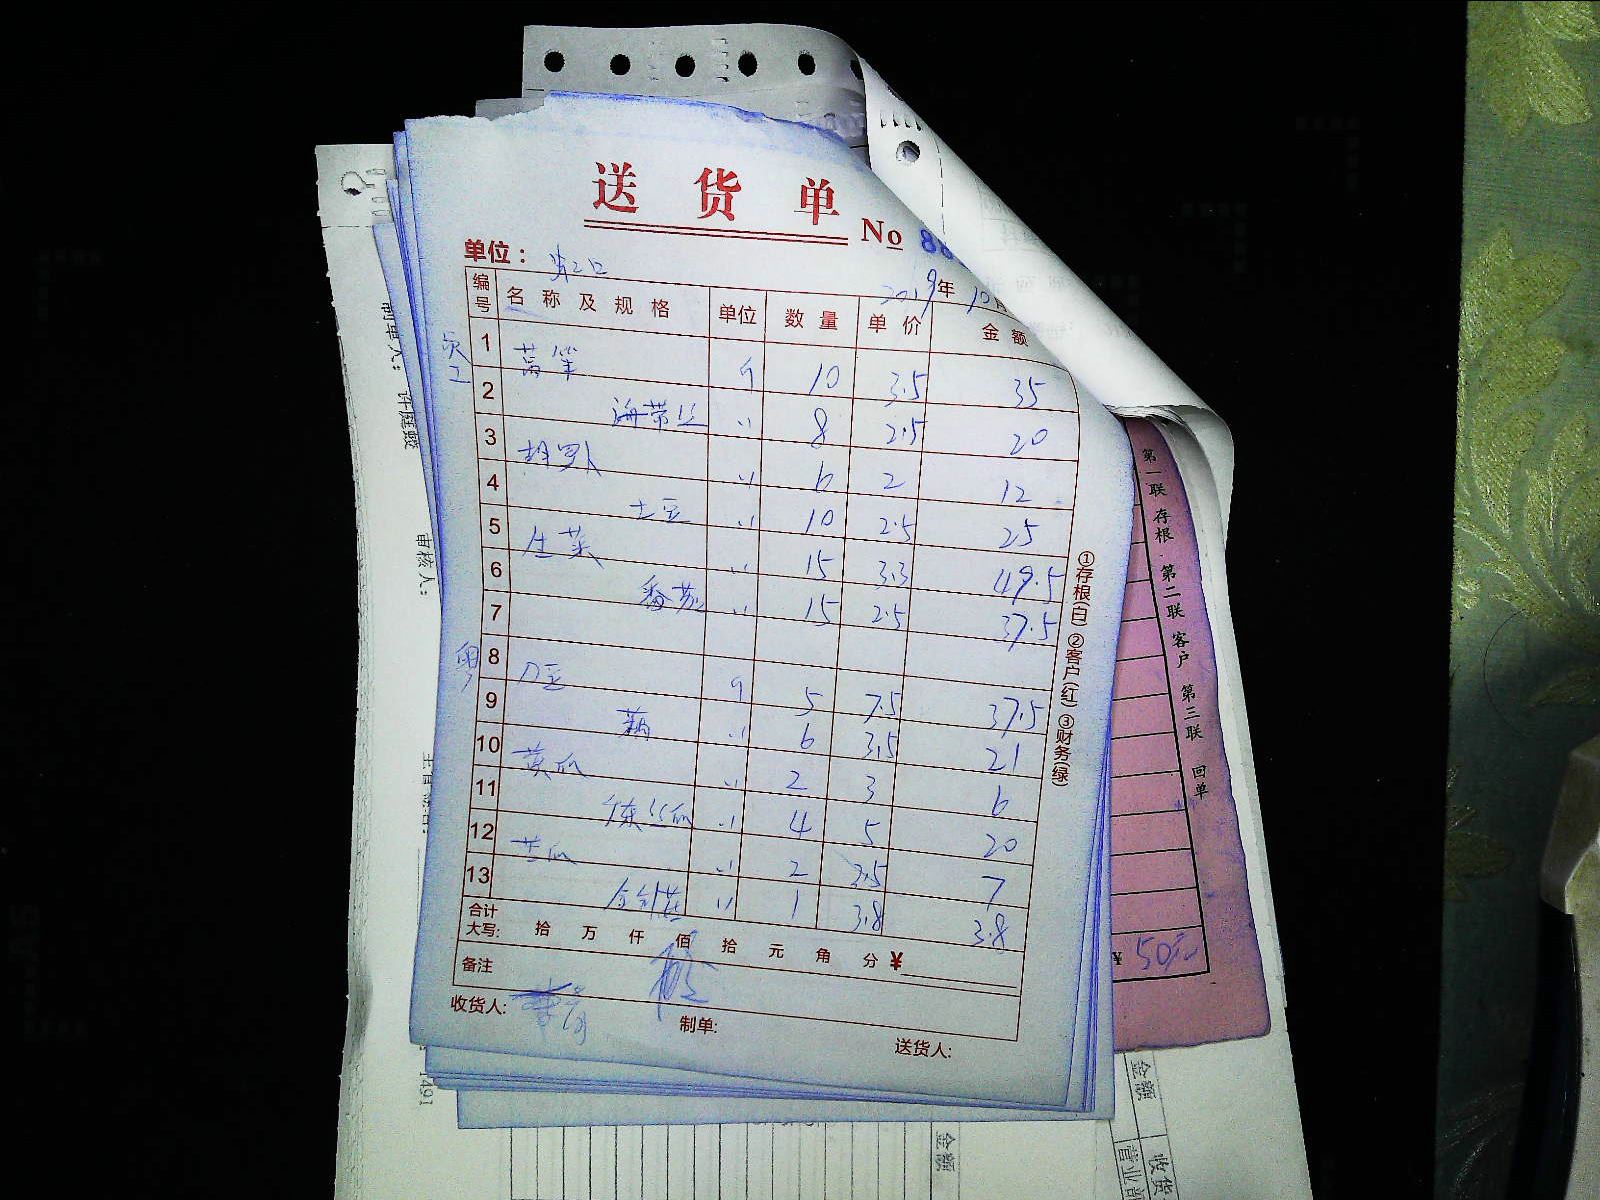 送货单
No 88
单位：
2019年10
编号 名称及规格 单位 数量 单价 金额
员工
1 莴笋 斤 10 3.5 35
2 海带丝 〃 8 2.5 20
3 胡罗卜 〃 6 2 12
4 土豆 〃 10 2.5 25
5 生菜 〃 15 3.3 49.5
6 番茄 〃 15 2.5 37.5
7
8 刀豆 斤 5 7.5 37.5
9 藕 〃 6 3.5 21
10 黄瓜 〃 2 3 6
11 丝瓜 〃 4 5 20
12 苦瓜 〃 2 3.5 7
13 金针菇 〃 1 3.8 3.8
合计大写： 拾 万 仟 佰 拾 元 角 分 ¥
备注
收货人:
制单:
送货人:
①存根(白) ②客户(红) ③财务(绿)
第一联 存根 第二联 客户 第三联 回单
¥ 50元
制单人：
审核人：
1491
金额
金额
收货
营业